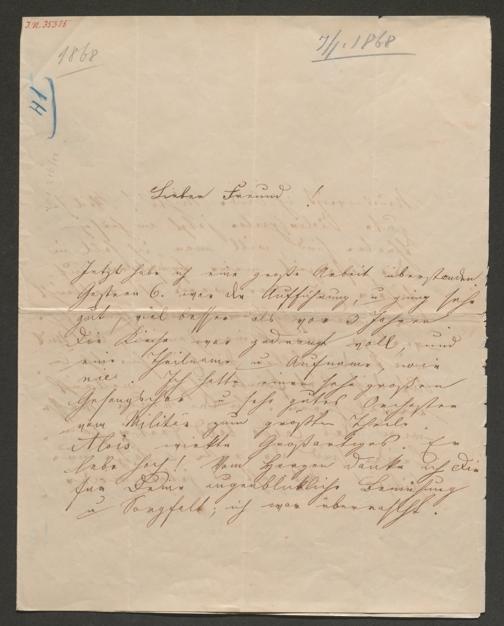 J.N. 35375
1868
7/1. 1868
14
Lieber Freund!
Jetzt habe ich eine große Arbeit überstanden.
Gestern 6. war die Aufführung, u ging sehr
gut, viel besser als vor 3 Jahren.
Die Kirche war gedrängt voll, und
eine Theilname u Aufname, wie
nie. Ich hatte einen sehr großen
Gesangschor u sehr gutes Orchester
vom Militär zum größten Theile.
Alois wirkte Großartiges. Er
lebe hoch! Vom Herzen danke ich Dir
für Deine augenblikliche Bemühung
u Sorgfalt; ich war überrascht.